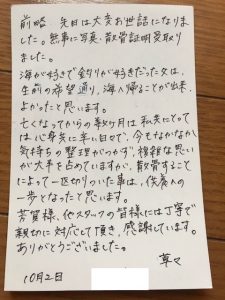 前略 先日は大変お世話になりま
した。無事に写真、散骨証明受取り
ました。
海が好きで釣りが好きだった父は、
生前の希望通り、海へ帰ることが出来、
よかったと思います。
亡くなってからの数ヶ月は私共にとって
は心身共に辛い日々で、今もなかなか
気持ちの整理がつかず、複雑な思い
が大半を占めていますが、散骨すること
によって一区切りついた事は、供養への
一歩となったと思います。
芳賀様、他スタッフの皆様には丁寧で
親切に対応して頂き、感謝しています。
ありがとうございました。
草々
10月2日